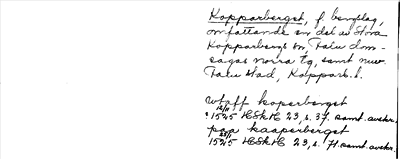 Kopparberget, f. bergslag,
omfattande en del av Stora
Kopparbergs sn, Falu dom-
sagas norra tg, samt nuv.
Falu stad, Kopparb. l.
wtaff koperberget
15/11 1525 HSkH 23, s. 37. samt. avskr.
paa kaaperberget
1525 HSkH 23, s. 71. samt. avskr.